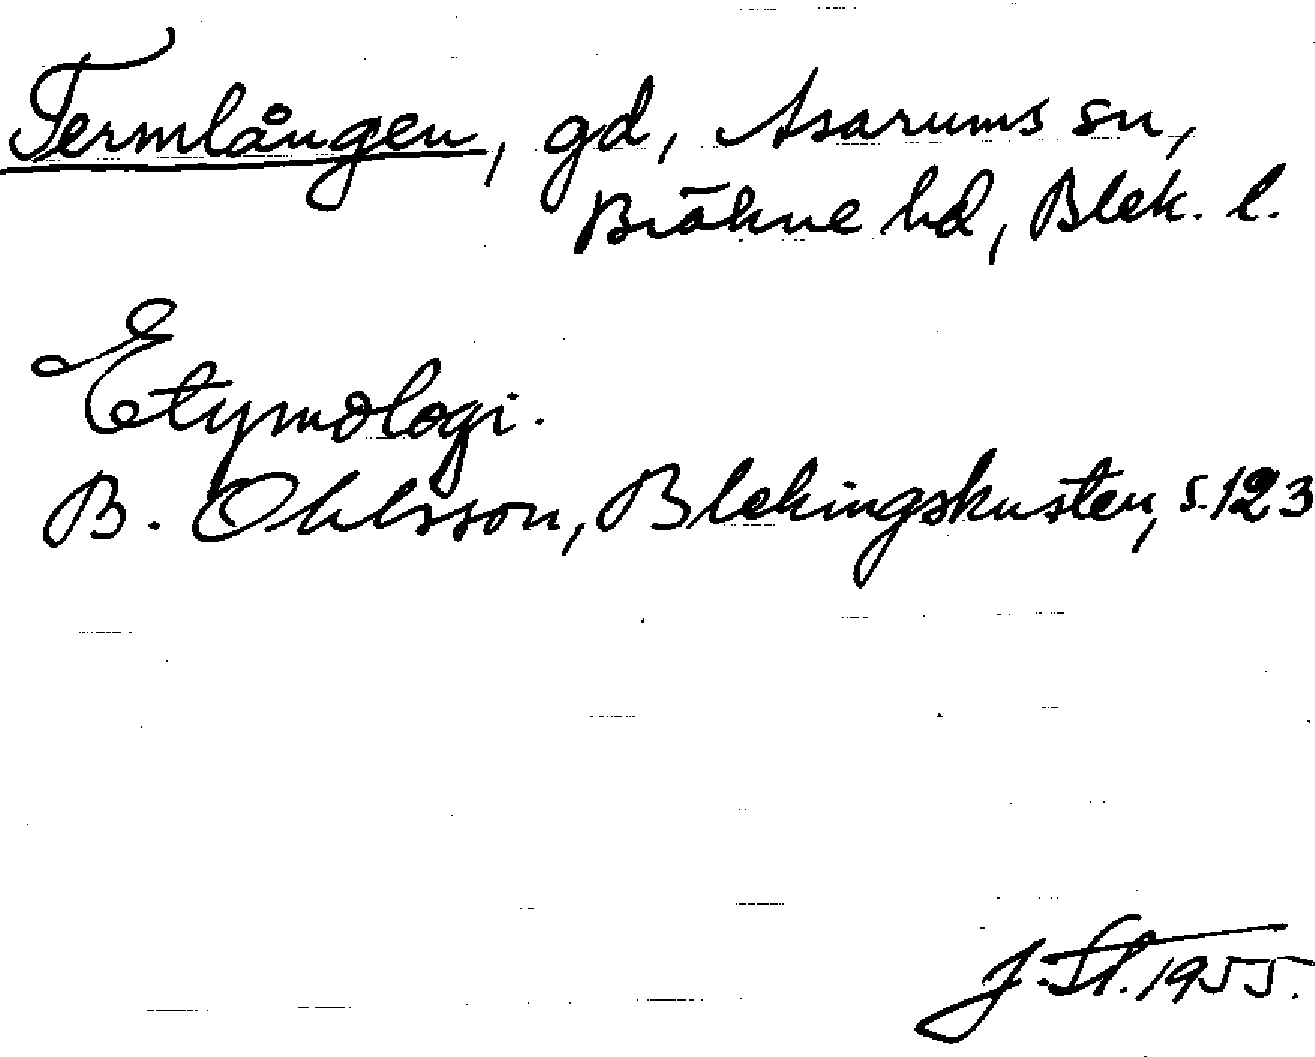 Termlången, gd, Asarums sn,
Bräkne hd, Blek. l.
Etymologi.
B. Ohlsson, Blekingskusten, s. 123
J. Sl. 1955.